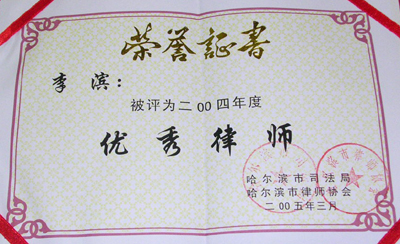 荣誉証書
李 滨：
被评为二00四年度
优秀律师
哈尔滨市司法局
哈尔滨市律师协会
二00五年三月